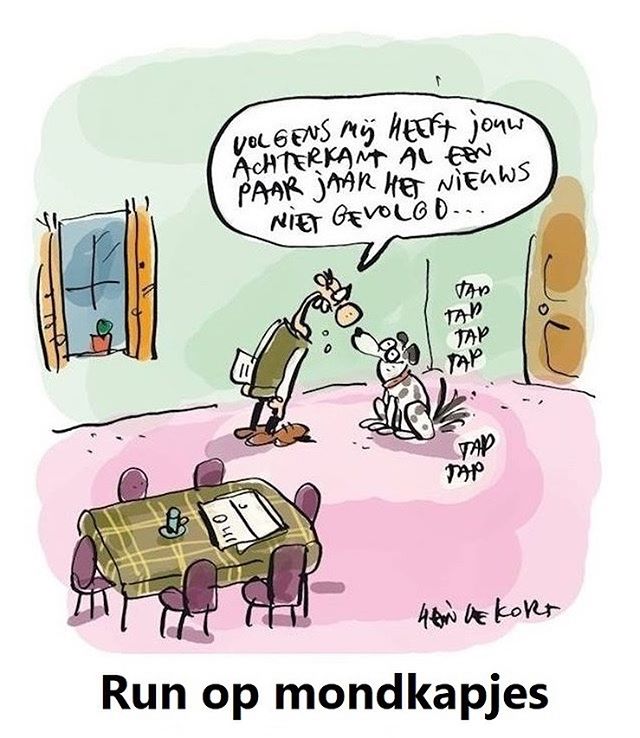 VOLGENS MIJ HEEFT JOUW
ACHTERKANT AL EEN
PAAR JAAR HET NIEUWS
NIET GEVOLGD...
TAP
TAP
TAP
TAP
TAP
TAP
HEIN DE KORT
Run op mondkapjes